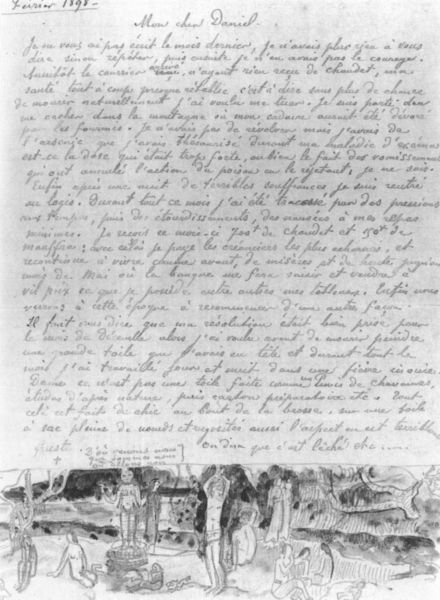 Février 1898 -
Mon cher Daniel.
Je ne vous ai pas écrit le mois dernier, je n'avais plus rien à vous
dire sinon répéter, puis ensuite je n'en avais pas le courage.
Aussitôt le courrier arrivé, n'ayant rien reçu de Chaudet, ma
santé tout à coup presque rétablie c'est à dire sans plus de chance
de mourir naturellement j'ai voulu me tuer. Je suis parti
me cacher dans la montagne où mon cadavre aurait été dévoré
par les fourmis. Je n'avais pas de révolver mais j'avais de
l'arsenic que j'avais thésaurisé durant ma maladie d'eczéma
est-ce la dose qui était trop forte, ou bien le fait des vomissements
qui ont annulé l'action du poison en le rejetant, je ne sais.
Enfin après une nuit de terribles souffrances je suis rentré
au logis. Durant tout ce mois j'ai été tracassé par des pressions
aux tempes, puis des étourdissements, des nausées à mes repas
minimes. Je reçois ce mois-ci 700f de Chaudet et 150f de
Mauffra: avec cela je paye les créanciers les plus acharnés, et
recontinue à vivre comme avant, de misères et de honte jusqu'au
mois de Mai où la banque me fera saisir et vendre à
vil prix ce que je possède entre autres mes tableaux. Enfin nous
verrons à cette époque à recommencer d'une autre façon.
Il faut vous dire que ma résolution était bien prise pour
le mois de Décembre alors j'ai voulu avant de mourir peindre
une grande toile que j'avais en tête et durant tout le
mois j'ai travaillé jour et nuit dans une fièvre inouïe.
Dame ce n'est pas une toile faite comme un Puvis de Chavannes,
études d'après nature, puis carton préparatoire etc. tout
cela est fait de chic au bout de la brosse, sur une toile
à sac pleine de nœuds et rugosités aussi l'aspect en est terriblement
fruste. On dira que c'est lâché etc ....
D'où venons nous
que sommes nous
où allons nous